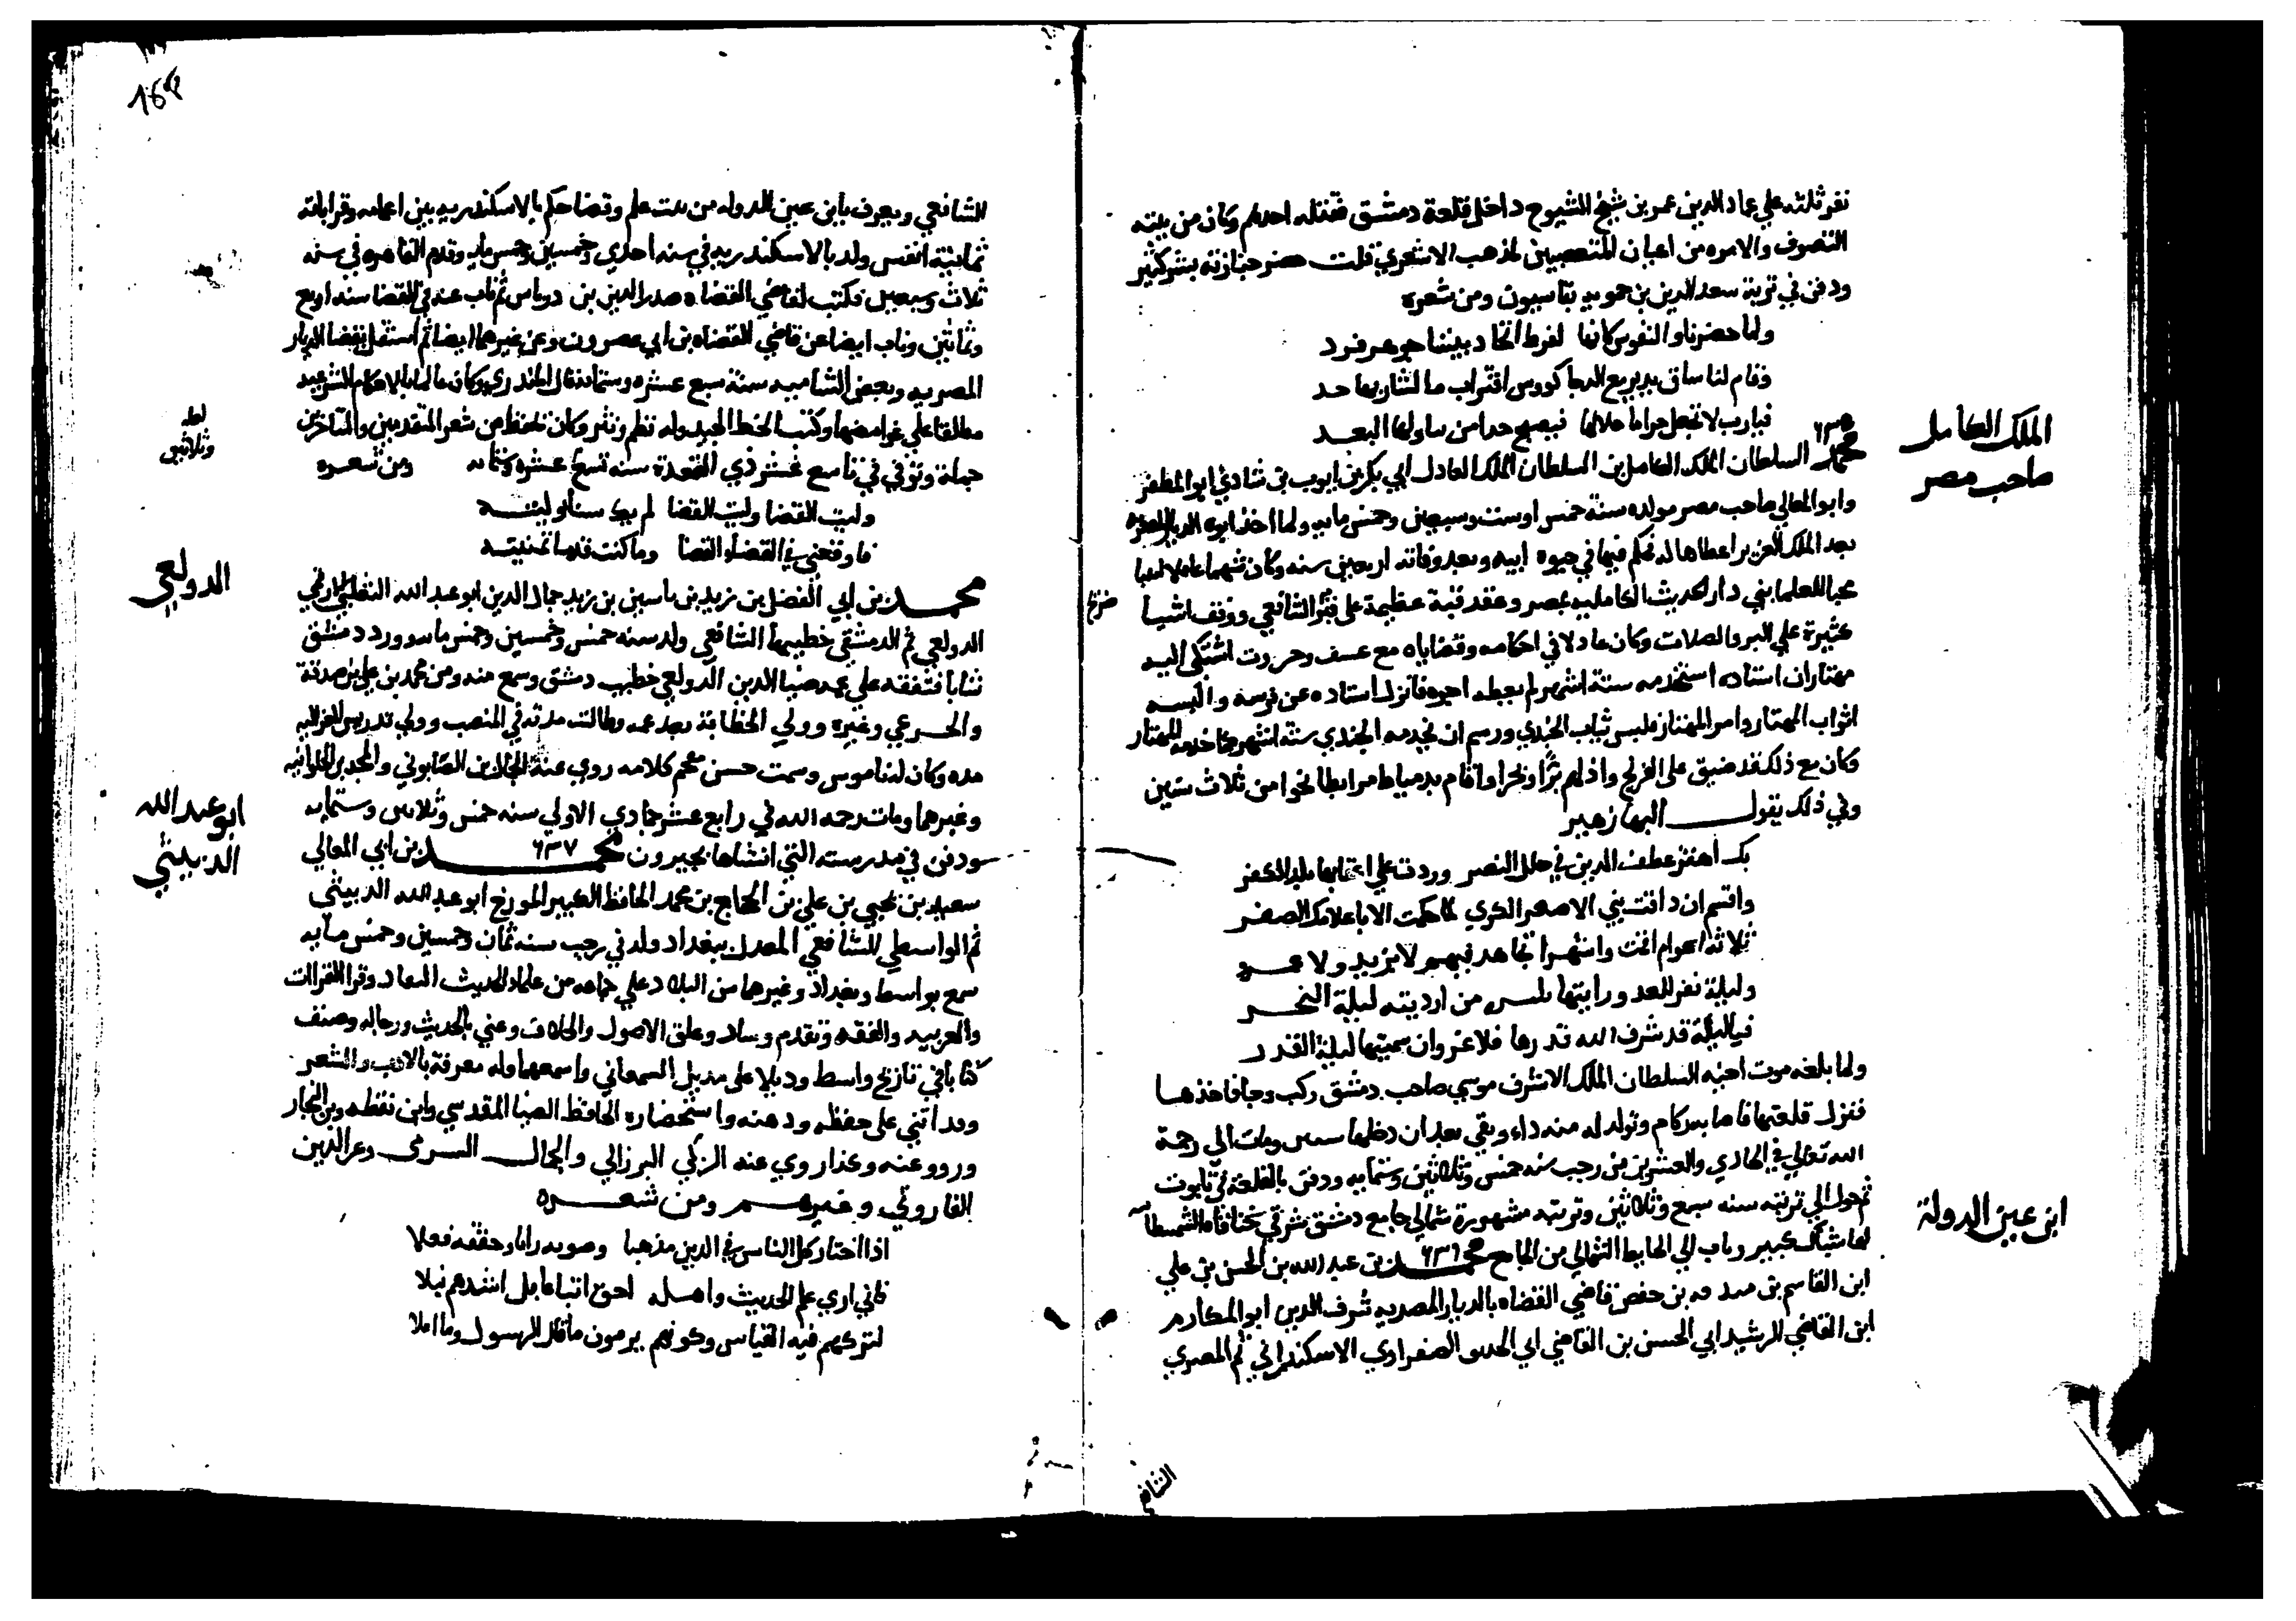 نفر ثلثه علي عماد الدين عمر بن شيخ الشيوخ داخل قلعة دمشق فقتله احدهم وكان من بيته
التصوف والامره من اعيان المتعصبين لمذهب الاشعري قلت حضر جنازته بشر كثير
ودفن في تربة سعد الدين بن حمويه بقاسيون ومن شعره
ولما حضرنا والنفوس كانها لفرط اتحاد بيننا جوهر فرد
وقام لنا ساق يدير مع الدجا كووس اقتراب ما لشاربها حد
فيارب لا تجعل حراما حلالها فيصبح حدا من تناولها البعد
الملك الكامل
صاحب مصر
٦٣٥
محمد السلطان الملك الكامل بن السلطان الملك العادل ابي بكر بن ايوب بن شادي ابو المظفر
وابو المعالي صاحب مصر مولده سنة خمس اوست وسبعين وخمس مايه ولما اخذ ابوه الديار المصريه
بعد الملك العزيز اعطاها له فحكم فيها في حيوة ابيه وبعد وفاته اربعين سنه وكان شهما عاملا
محبا للعلما بني دار الحديث الكامليه بمصر وعقد قبة عظيمة على ضريح الشافعي ووقف اشيا
كثيرة علي البر والصلات وكان عادلا في احكامه وقضاياه مع عسف وجبروت اشتكى اليه
مهتار ان استاده استخدمه ستة اشهر لم يعطه اجره فانزل استاده عن فرسه والبسه
اثواب المهتار وامر المهتار فلبس ثياب الجندي ورسم ان يخدمه الجندي ستة اشهر كما خدمه المهتار
وكان مع ذلك قد ضيق على الفرنج واذلهم برا وبحرا واقام بدمياط مرابطا نحوا من ثلاث سنين
وفي ذلك يقول البها زهير
بك اهتز عطف الدين في حلل النصر وردت علي اعقابها ملة الكفر
واقسم ان ذاقت بني الاصفر الكري لما حكمت الا باعلامك الصفر
ثلاثة اعوام اقمت واشهرا تجاهد فيهم لا بزيد ولا عمرو
وليلة نفر للعدو رايتها من ارديته ليلة النحر
فيا ليلة قد شرف الله قدرها فلا غرو ان سميتها ليلة القدر
ولما بلغه موت اخيه السلطان الملك الاشرف موسي صاحب دمشق ركب وجا فاخذها
فنزل قلعتها فاصابه زكام وتولد له منه داء وبقي بعد ان دخلها ومات الي رحمة
الله تعالي في الحادي والعشرين من رجب سنه خمس وثلاثين وستمايه ودفن بالقلعة في تابوت
ثم حول الي تربته سنه سبع وثلاثين وتربته مشهورة شمالي جامع دمشق شرقي خانقاه الشمساطيه
لها شباك كبير وباب الي الحايط الشمالي من الجامع
ابن عين الدولة
٦٣٩ محمد بن عبد الله بن الحسن بن علي
ابن القاسم بن صدقه بن حفص قاضي القضاه بالديار المصريه شرف الدين ابو المكارم
ابن القاضي الرشيد ابي الحسن بن القاضي ابي المجد الصفراوي الاسكندراني ثم المصري
الشافعي
الشافعي ويعرف بابن عين الدوله من بيت علم وقضا حكم بالاسكندريه من اعمامه وقراباته
ثمانية انفس ولد بالاسكندريه في سنه احدي وخمسين وخمس مايه وقدم القاهره في سنه
ثلاث وسبعين فكتب لقاضي القضاه صدر الدين بن درباس ثم ناب عنه في القضا سنه اربع
وثمانين وناب ايضا عن قاضي القضاه بن ابي عصرون وعن غيرهما ايضا ثم استقل بقضا الديار
المصريه وبعض الشاميه سنة سبع عشره وستمايه قال المنذري وكان عالما بالاحكام الشرعيه
مطلعا علي غوامضها وكتب الخط الجيد وله نظم ونثر وكان يحفظ من شعر المتقدمين والمتاخرين
جملة وتوفي في تاسع عشر ذي القعدة سنه تسع عشره وستمايه ومن شعره
لعله
وثلاثين
وليت القضا وليت القضا لم يك شيئا وليته
فاوقعني في القضا والقضا وما كنت قدما تمنيته
الدولعي
محمد بن ابي الفضل بن زيد بن ياسين بن زيد جمال الدين ابو عبد الله التغلبي الارقمي
الدولعي ثم الدمشقي خطيبها الشافعي ولد سنه خمس وخمسين وخمس مايه وورد دمشق
شابا فتفقه علي عمه ضيا الدين الدولعي خطيب دمشق وسمع منه ومن محمد بن علي بن صدقة
والجنزوي وغيره وولي الخطابة بعد عمه وطالت مدته في المنصب وولي تدريس الغزاليه
مده وكان له ناموس وسمت حسن يفخم كلامه روي عنه الجمال بن الصابوني والمجد بن الحلوانيه
وغيرهما ومات رحمه الله في رابع عشر جمادي الاولي سنه خمس وثلاثين وستمايه
ودفن في مدرسته التي انشاها بجيرون
ابو عبد الله
الدبيثي
٦٣٧ محمد بن ابي المعالي
سعيد بن يحيي بن علي بن الحجاج بن محمد الحافظ الكبير المورخ ابو عبد الله الدبيثي
ثم الواسطي الشافعي المعدل ببغداد ولد في رجب سنه ثمان وخمسين وخمس مايه
سمع بواسط وبغداد وغيرها من البلاد علي جماعه من علماء الحديث وقرا القراات
والعربيه والفقه وتقدم وساد وعلق الاصول والخلاف وعني بالحديث ورجاله وصنف
كتابا في تاريخ واسط وذيلا على مذيل السمعاني واسمعهما وله معرفة بالادب والشعر
وقد اثني علي حفظه وذهنه واستحضاره الحافظ الضيا المقدسي وابن نقطه وبن النجار
ورووا عنه وكذا روي عنه الزكي البرزالي والجمال الشريشي وعز الدين
الفاروثي وغيرهم ومن شعره
اذا اختار كل الناس في الدين مذهبا وصوبه رايا وحققه فعلا
فاني اري علم الحديث واهله احق اتباعا بل اسدهم نبلا
لتركهم فيه القياس وكونهم يومون ما قال الرسول وما املا